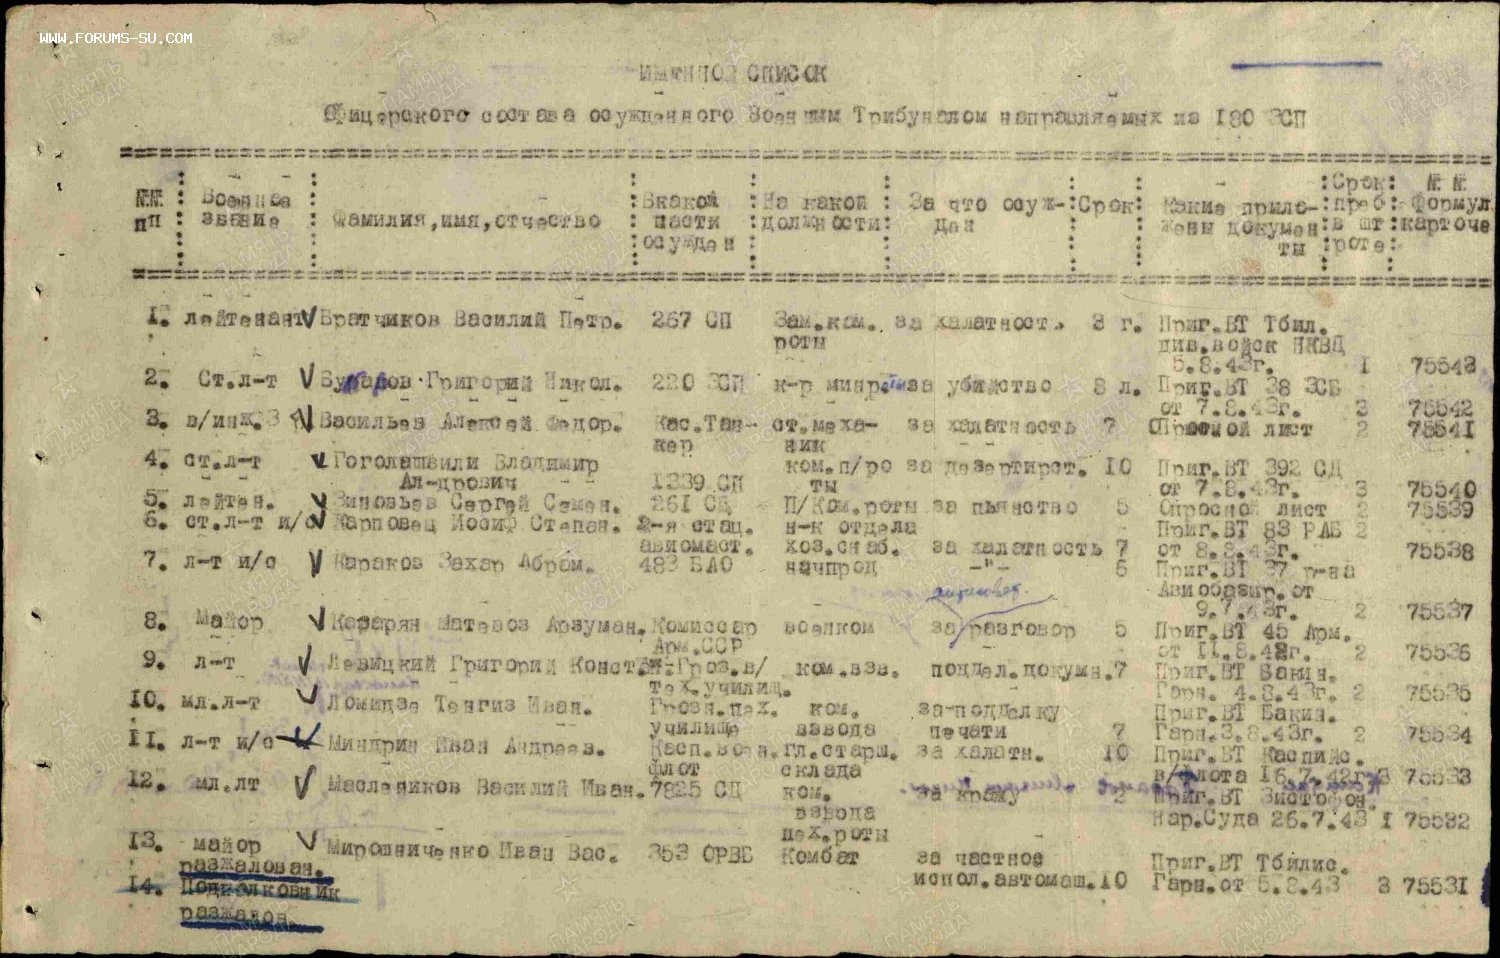 WWW.FORUMS-SU.COM
ИМЕННОЙ СПИСОК
Офицерского состава осужденного Военным Трибуналом направляемых из 180 ЗСП
№№ пп : Военное звание : Фамилия,имя,отчество : Вкакой части осужден : На какой должности : За что осуж-ден : Срок : Какие прило-жены докумен ты : Срок преб. в шт роте : № № Формул. карточе
1. лейтенант Братчиков Василий Петр. 267 СП Зам.ком. за халатность 3 г. Приг.ВТ Тбил.
роты див.войск НКВД
5.8.43г. 1 75543
2. Ст.л-т Григорий Никол. 220 ЗСП к-р минр. за убийство 8 л. Приг.ВТ 38 ЗСБ
от 7.8.43г. 3 75542
3. в/инж.3 Васильев Алексей Федор. Кас.Тан- ст.меха- за халатность 7 Опросной лист 2 75541
кер ник
4. ст.л-т Гоголашвили Владимир ком.п/ро за дезертирст. 10 Приг.ВТ 392 СД
Ал-дрович 1339 СП ты от 7.8.43г. 3 75540
5. лейтен. Зиновьев Сергей Семен. 261 СД П/Ком.роты за пьянство 5 Опросной лист 2 75539
6. ст.л-т и/с Карповец Иосиф Степан. 2-я стац. н-к отдела Приг.ВТ 83 РАБ 2
авиомаст. хоз.снаб. за халатность 7 от 8.8.43г. 75538
7. л-т и/с Каракоз Захар Абрам. 483 БАО начпрод -"- 5 Приг.ВТ 37 р-на
Авиобазир.от
9.7.43г. 2 75537
8. Майор Казарян Матевоз Арзуман. Комиссар военком за разговор 5 Приг.ВТ 45 Арм.
Арм.ССР от 11.8.42г. 2 75536
9. л-т Левицкий Григорий Конст. Гроз.в/ ком.взв. поддел.докумн. 7 Приг.ВТ Бакин.
тех.училищ. Гарн. 4.8.43г. 2 75535
10. мл.л-т Ломидзе Тенгиз Иван. Грозн.пех. ком. за подделку Приг.ВТ Бакин.
училище взвода печати 7 Гарн.3.8.43г. 2 75534
11. л-т и/с Миндрин Иван Андреев. Касп.воен. гл.старш. за халатн. 10 Приг.ВТ Каспийс.
флот склада в/флота 16.7.42г 3 75533
12. мл.лт Маслеников Василий Иван. 7825 СД ком. за кражу 2 Приг.ВТ
взвода Нар.Суда 26.7.43 1 75532
пех.роты
13. майор Мирошниченко Иван Вас. 353 ОРВБ Комбат за частное Приг.ВТ Тбилис.
разжалован. испол.автомаш. 10 Гарн.от 5.8.43 3 75531
14. Подполковник
разжалов.